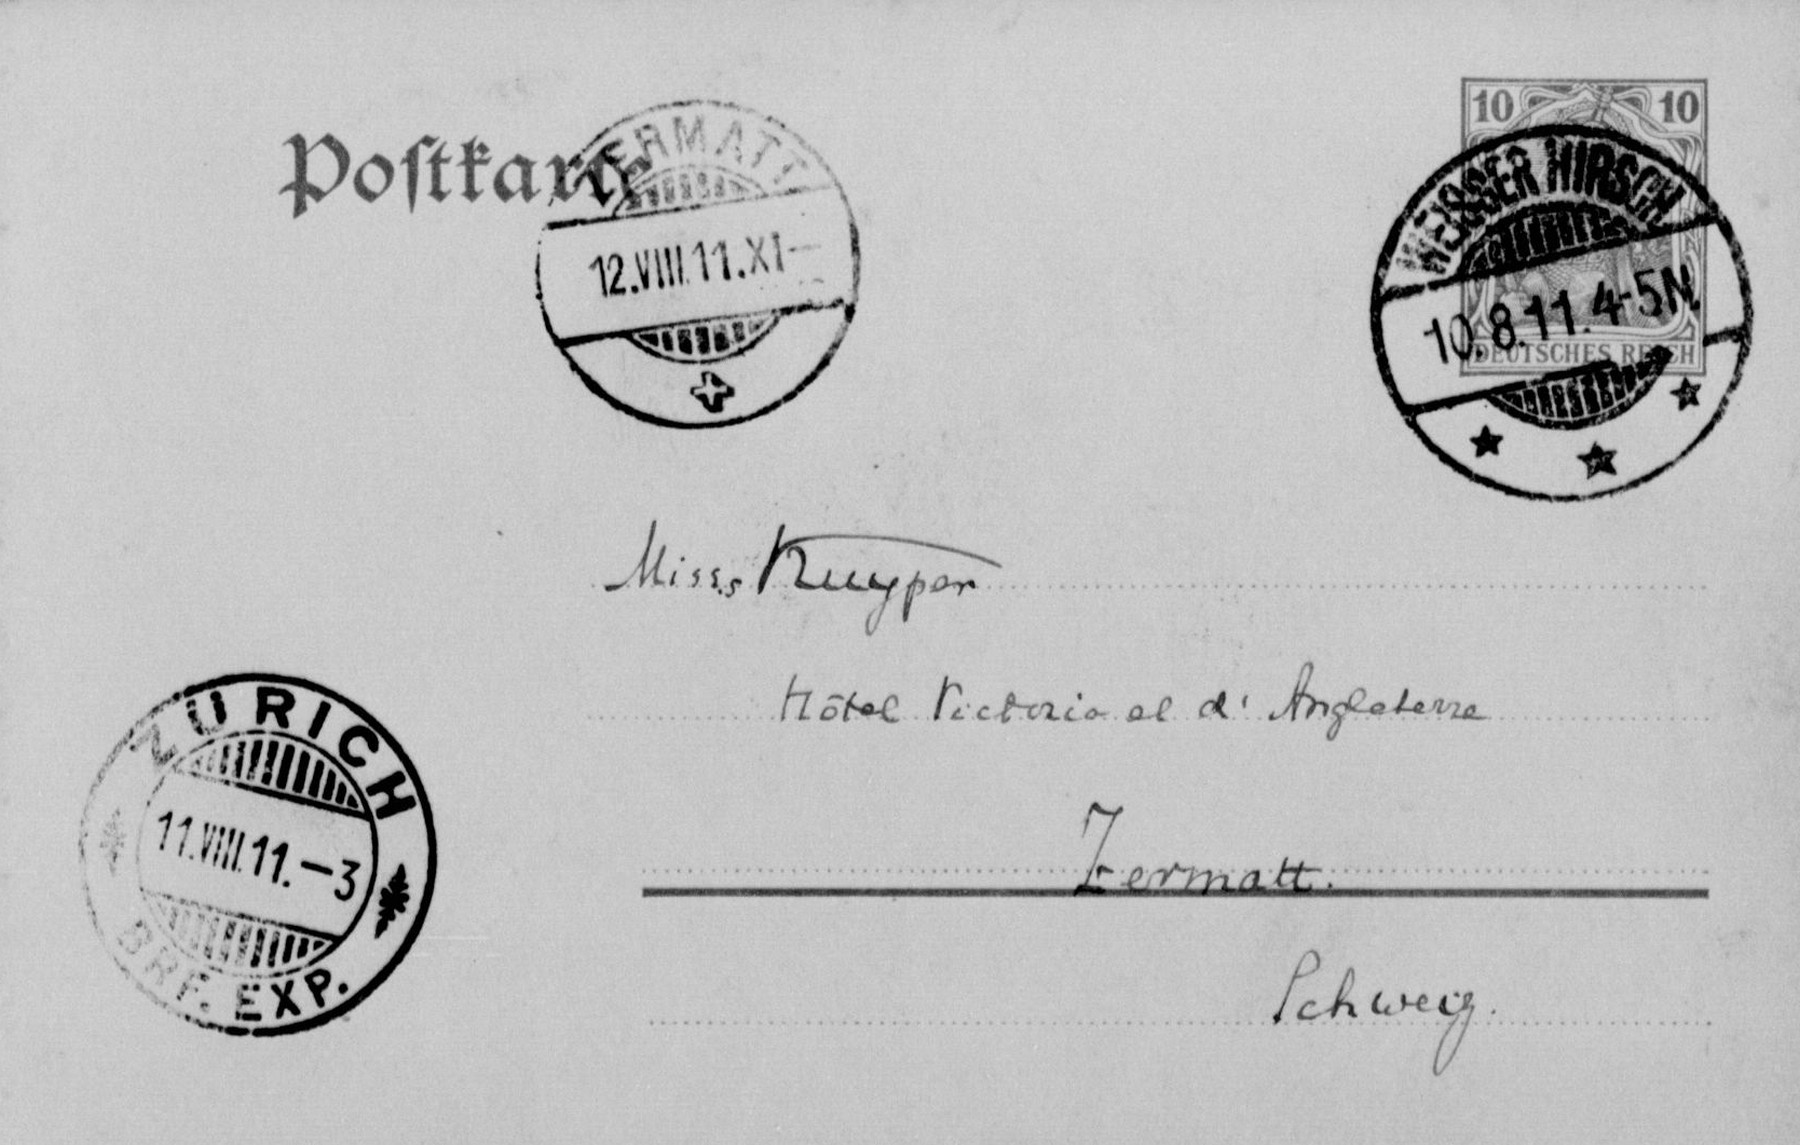 Postkarte
ZERMATT
12.VIII.11.XI–
10 10
DEUTSCHES REICH
WEISSER HIRSCH
10.8.11.4-5N.
Miss.s Kuyper
Hôtel Victoria et d'Angleterre
Zermatt.
Schweiz.
ZÜRICH
11.VIII.11.–3
BRF. EXP.